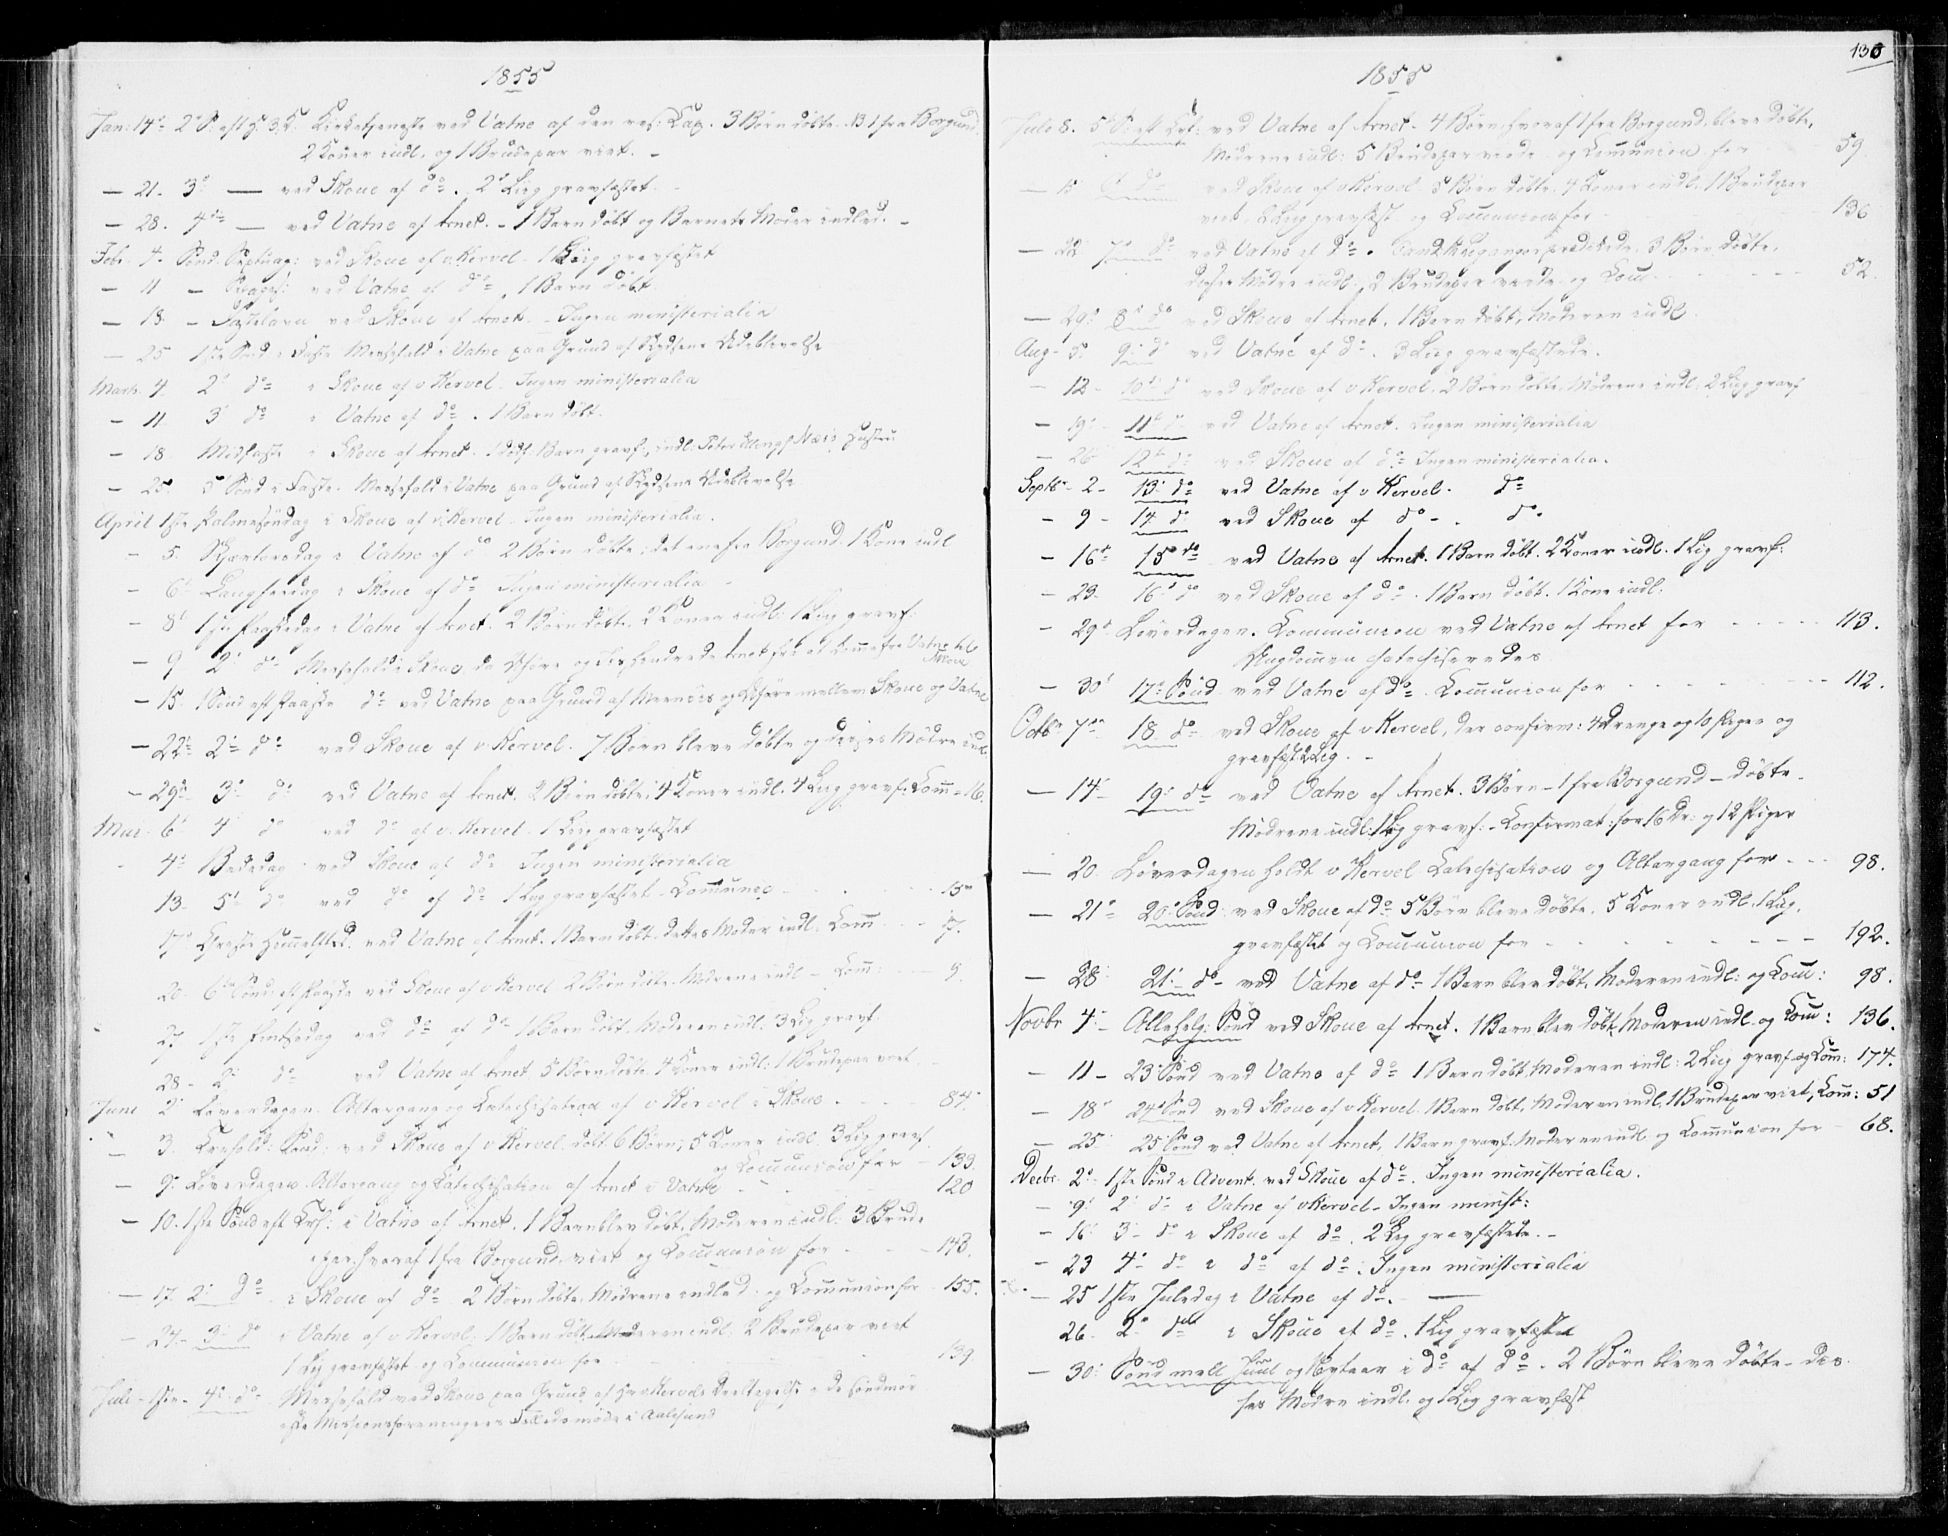 1855
Jan: 14de 2 S. eft H. 3 K. Kirketjeneste ved Vatne af den res: Cap. 3 Børn døbte - NB 1 fra Borgund.
2 Koner indl. og 1 Brudepar viet. -
- 21. 3de - ved Skoue af do. 2 Liig gravfæstet.
- 28. 4de - ved Vatne af Arnet. - 1 Barn døbt og Barnets Moder indled. -
Febr. 4. Sønd. Septuag: ved Skoue af v. Kervel - 1 Liig gravfæstet
- 11 - Sexages: ved Vatne af do 1 Barn døbt
- 18. - Fastelavn ved Skoue af Arnet. - Ingen ministerialia
- 25 1ste Sønd i Faste Messefald i Vatne paa Grund af Skydsens Udeblivelse
Marts. 4. 2 do i Skoue af v Kervel - Ingen ministerialia
- 11 3 do i Vatne af do. 1 Barn døbt.
- 18. Midfaste i Skoue af Arnet. 1 Barn gravf, indl. Peter Hustru
- 25. 5 Sønd i Faste. Messefald i Vatne paa Grund af Skydsens Udeblivelse
April 1ste Palmesøndag i Skoue af v Kervel - Ingen ministerialia.
- 5. Skjærtorsdag i Vatne af do 2 Børn døbte; det ene fra Borgund. 1 Kone indl
- 6 Langfredag i Skoue af do Ingen ministerialia -
- 8 1ste Paaskedag i Vatne af Arnet. 2 Børn døbte. 2 Koner indl: 1 Liig gravf:
- 9 2 do Messefald i Skoue, da Uføre og forhindrede Arnet fra at komme fra Vatne til Skoue
- 15. 1 Sønd eft Paaske do ved Vatne paa Grund af og Uføre mellem Skoue og Vatne
- 22de 2 do ved Skoue af v. Kervel. 7 Børn bleve døbte og disses Mødre indl
- 29de 3 do ved Vatne af Arnet. 2 Børn døbte; 4 Koner indl. 4 Liig gravf. Com - 16.
Mai. 6 4 do ved do af v. Kervel. 1 Liig gravfæstet
4de Bededag ved Skoue af do Ingen ministerialia
13. 5 do ved do af do 1 Liig gravfæstet - Communio - - 15
17 Christi Himmelf.d. ved Vatne af Arnet. 1 Barn døbt. dettes Moder indl. Com - -
20. 6te Sønd. eft Paaske ved Skoue af v. Kervel 2 Børn døbte. Mødrene indl - Com: - 9.
27 1ste Pintsedag ved do af do 1 Barn døbt. Moderen indl. 3 Liig gravf.
28 - 2 do ved Vatne af Arnet 5 Børn døbte. 4 Koner indl: 1 Brudepar viet. -
June 2 Løverdagen. Altergang og Catechisation af v Kervel i Skoue. - - - - 84.
- 3. Trefold: Sønd: ved Skoue af v. Kervel. døbt 6 Børn; 5 Koner indl. 3 Liig gravf.
og Communion for - 133.
- 9. Løverdagen Altergang og Catechisation af Arnet i Vatne - - - 120
- 10. 1ste Sønd eft Tref: i Vatne af Arnet. 1 Barn blev døbt, Moderen indl: 3 Brude
par, hvoraf 1 fra Borgund, viet og Communion for - - - 143.
- 17. 2 do i Skoue af do 2 Børn døbte Mødrene indled. og Communion for - 155.
- 24 - 3 do i Vatne af v Kervel, 1 Barn døbt, Moderen indl: 2 Brudepar viet
1 Liig gravfæstet og Communion for - - - 139
Juli - 1ste - 4 do Messefald ved Skoue paa Grund af Hr v Kervels Deeltagelse i de søndmør
ske Missionsforeningers Fælledsmøde i Aalesund
130
1855
Julo 8. 5te S. eft Tref: ved Vatne af Arnet - 4 Børn, hvoraf 1 fra Borgund, bleve døbte,
Mødrene indl: 5 Brudepar viede og Communion for - 59
- 15 6 do ved Skoue af v Kervel 5 Børn døbte. 4 Koner indl. 1 Brudepar
viet, 2 Liig gravfæst og Communion for - 136
- 22 7 do ved Vatne af do. prædikede. 3 Børn døbte,
disses Mødre indl. 2 Brudepar viede og Com - - - - 52.
- 29. 8 do ved Skoue af Arnet. 1 Barn døbt, Moderen indl.
Aug - 5. 9 do ved Vatne af do. 3 Liig gravfæstede.
- 12 - 10 do ved Skoue af v Kervel. 2 Børn døbte. Mødrene indl: 2 Liig gravf
- 19 - 11te do ved Vatne af Arnet. Ingen ministerialia
- 26 12te do ved Skoue af do Ingen ministerialia.
Septbr - 2 - 13 do ved Vatne af v Kervel. do
- 9 - 14 do ved Skoue af do - . do
- 16de 15 do ved Vatne af Arnet. 1 Barn døbt. 2 Koner indl. 1 Lig gravf:
- 23. 16 do ved Skoue af do. 1 Barn døbt. 1 Kone indl:
- 29de Løverdagen. Communion ved Vatne af Arnet for - - - - - 113.
Ungdommen catechiseredes
- 30 17de Sønd ved Vatne af do. Communion for - - - - - 112.
Octbr 7de 18 do ved Skoue af v Kervel, der confirm: 4 Drenge og 10 Piger og
gravfæst 2 Lig. -
- 14 - 19 do ved Vatne af Arnet. 3 Børn - 1 fra Borgund - døbte.
Mødrene indl: 1 Lig gravf: - Confirmat: for 16 Dr: og 12 Piger
- 20. Løverdagen holdt v Kervel Catechisation og Altergang for - - - 98.
- 21de 20 Sønd ved Skoue af do 5 Børn bleve døbte. 5 Koner indl. 1 Liig.
gravfæstet og Communion for - - - - - - 192.
- 28 21 - do - ved Vatne af do 1 Barn blev døbt, Moderen indl: og Com: 98.
Novbr 4 - Allehelg: Sønd ved Skoue af Arnet. 1 Barn blev døbt, Moderen indl. og Com: 136.
- 11 - 23 Sønd ved Vatne af do 1 Barn døbt, Moderen indl: 2 Liig gravf. og Com: 174.
- 18 24 Sønd ved Skoue af v Kervel. 1 Barn døbt, Moderen indl, 1 Brudepar viet, Com: 51
- 25 25 Sønd ved Vatne af Arnet, 1 Barn gravf: Moderen indl. og Communion for - 68.
Decbr. 2 - 1ste Sønd i Advent. ved Skoue af do. Ingen ministerialia.
- 9 2 do i Vatne af v Kervel - Ingen minist:
- 16 3 - do i Skoue af do. 2 Lig gravfæstede. -
- 23 4 - do i do af do. Ingen ministerialia
- 25 1ste Juledag i Vatne af do. -
26. 2 do i Skoue af do. 1 Lig gravfæstet
- 30. Sønd mell Juul og Nytaar i do af do. 2 Børn bleve døbte - dis
ses Mødre indl. og 1 Lig gravfæst